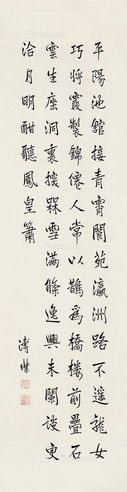 平陽池館接青霄閬苑瀛洲路不遥龍女
巧將霞製錦僊人常以鵲為橋樓前疊石
雲生座洞裏探罙雪滿條逸興未闌設更
洽月明酣聽鳳皇簫
溥僡